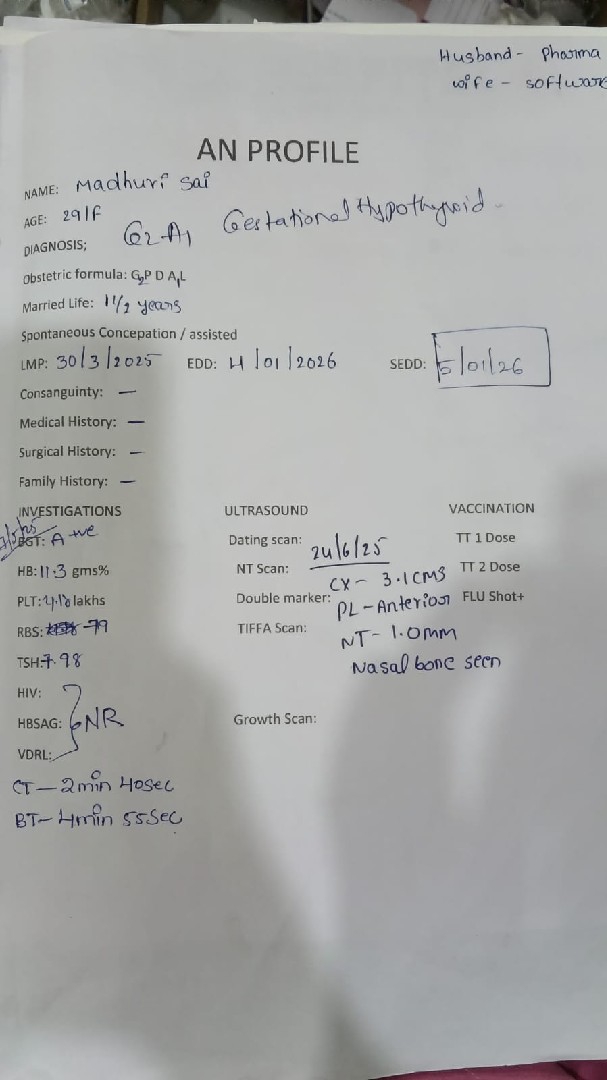 Husband - Pharma
wife - software
AN PROFILE
NAME: Madhuri sai
AGE: 29/F
DIAGNOSIS; G2 A1 Gestational Hypothyroid -
Obstetric formula: G2P D A1L
Married Life: 1 1/2 years
Spontaneous Concepation / assisted
LMP: 30/3/2025 EDD: 4/01/2026 SEDD: 5/01/26
Consanguinty: —
Medical History: —
Surgical History: —
Family History: —
INVESTIGATIONS ULTRASOUND VACCINATION
BGT: A +ve Dating scan: TT 1 Dose
24/6/25
HB: 11.3 gms% NT Scan: CX - 3.1 CMS TT 2 Dose
PLT: 4.18 lakhs Double marker: PL - Anterior FLU Shot+
RBS: - 79 TIFFA Scan: NT - 1.0mm
TSH: 7.98 Nasal bone seen
HIV:
HBSAG: NR Growth Scan:
VDRL:
CT — 2min 40sec
BT — 4min 55sec